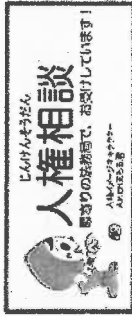 じんけんそうだん
人権相談
最寄りの法務局で、お受けしています！
人権イメージキャラクター
人KENまもる君